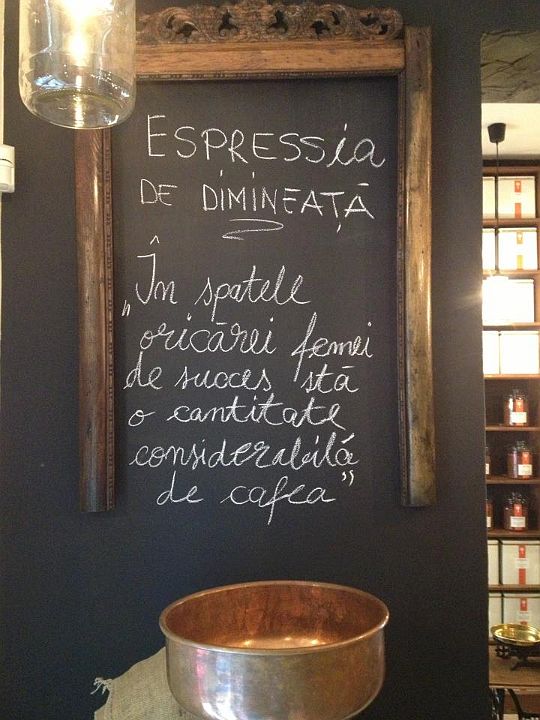 ESPRESSia
DE DIMINEAȚĂ
„În spatele
oricărei femei
de succes stă
o cantitate
considerabilă
de cafea”